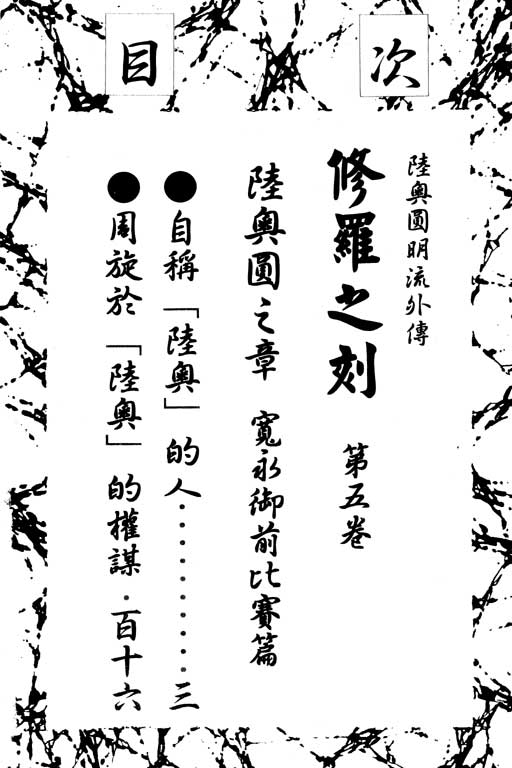 目次
陸奧圓明流外傳
修羅之刻　第五卷
陸奧圓之章　寬永御前比賽篇
●自稱「陸奧」的人‥‥‥‥‥三
●周旋於「陸奧」的權謀‥百十六